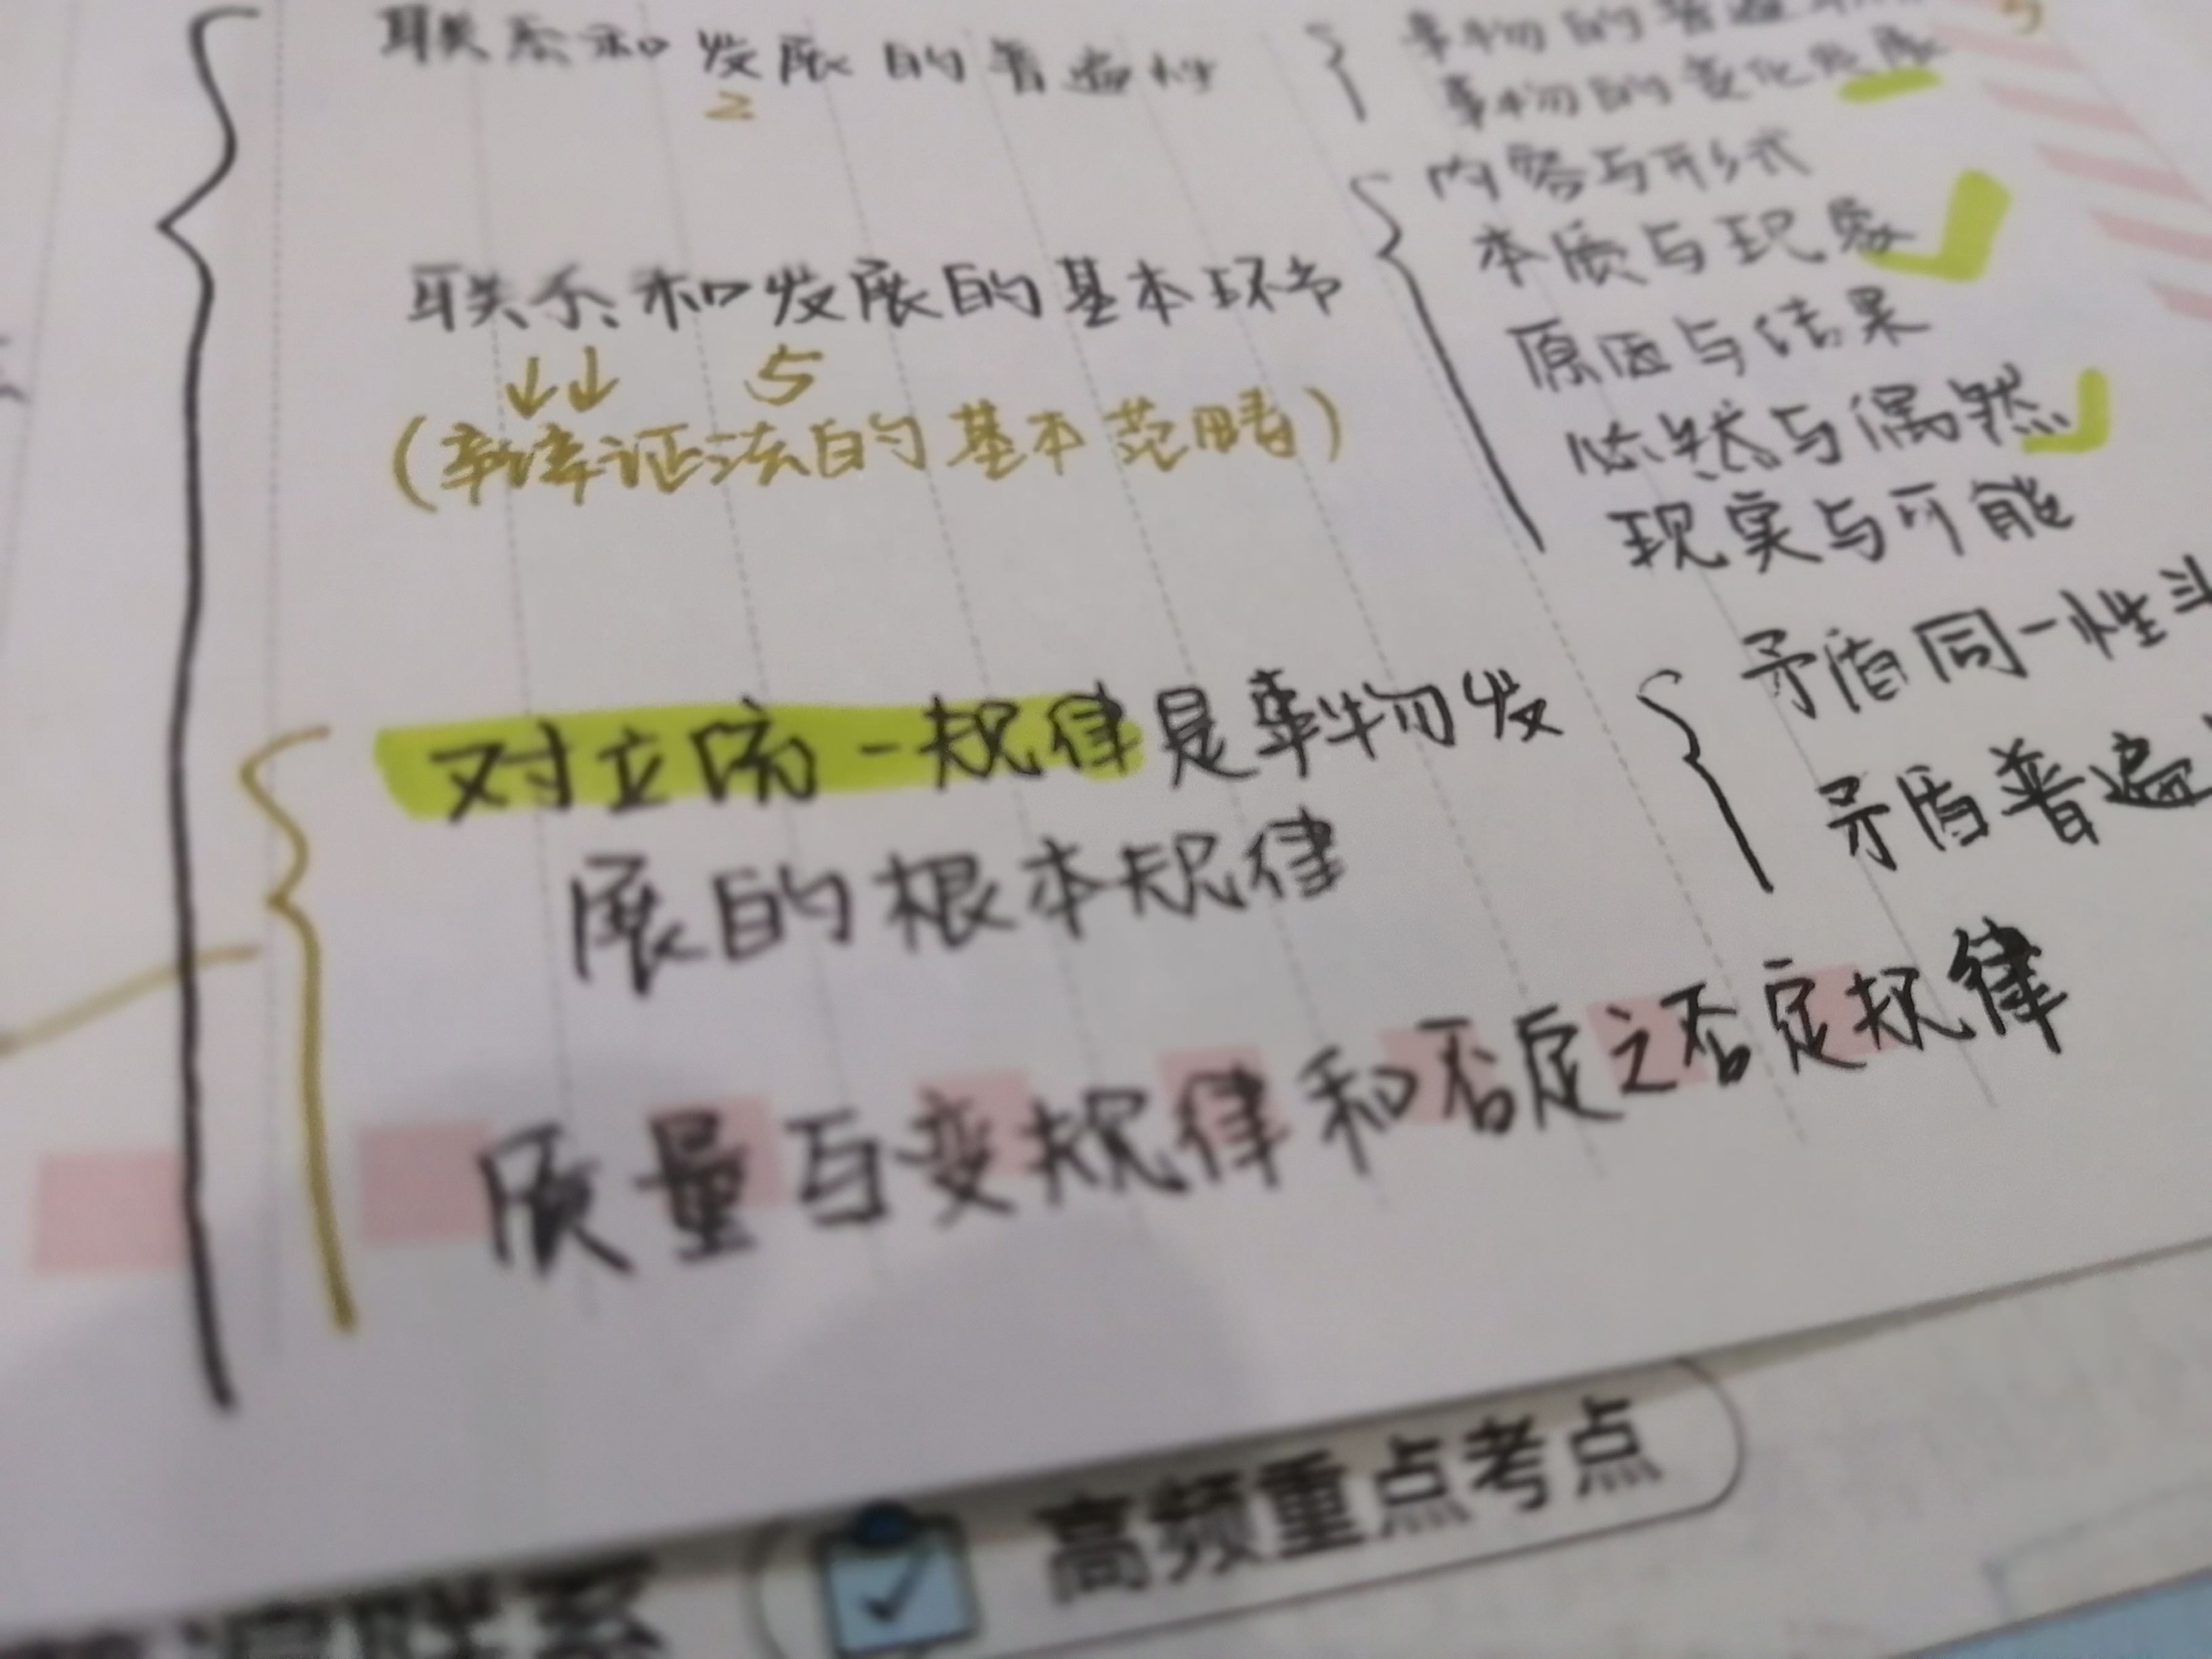 联系和发展的普遍性
2
事物的普遍
事物的变化发展
5
联系和发展的基本环节
↓↓ 5
(唯物辩证法的基本范畴)
内容与形式
本质与现象
原因与结果
必然与偶然
现实与可能
对立统一规律是事物发
展的根本规律
矛盾同一性
矛盾普遍
质量互变规律和否定之否定规律
高频重点考点